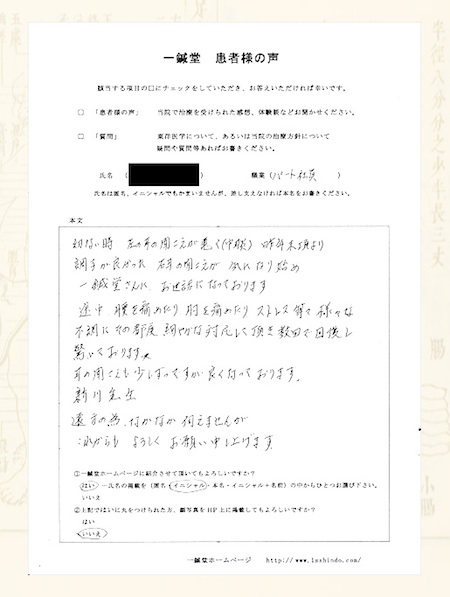 一鍼堂 患者様の声
該当する項目の口にチェックをしていただき、お答えいただければ幸いです。
□ 「患者様の声」 当院で治療を受けられた感想、体験談などお聞かせください。
□ 「質問」 東洋医学について、あるいは当院の治療方針について
疑問や質問等あればお書きください。
氏名 ( ) 職業 (パート社員 )
氏名は匿名、イニシャルでもかまいませんが、差し支えなければ本名をお書きください。
本文
幼ない時 左の耳の聞こえが悪く(中順) 昨年末頃より
調子が良かった 右耳の聞こえが 気になり始め
一鍼堂さんに お世話になっております
途中 腰を痛めたり 肘を痛めたり ストレス等々 様々な
不調に その都度 細やかな対応して頂き 数回で回復し
驚いております。
耳の聞こえも少しずつですが良くなっております。
新川先生
遠方の為、なかなか伺えませんが
これからも よろしく お願い申し上げます。
①一鍼堂ホームページに紹介させて頂いてもよろしいですか?
はい →氏名の掲載を(匿名・イニシャル・本名・イニシャル+名前)の中からひとつお選び下さい。
いいえ
②上記ではいに丸をつけられた方、顔写真をHP上に掲載してもよろしいですか?
はい
いいえ
一鍼堂ホームページ http://www.isshindo.com/